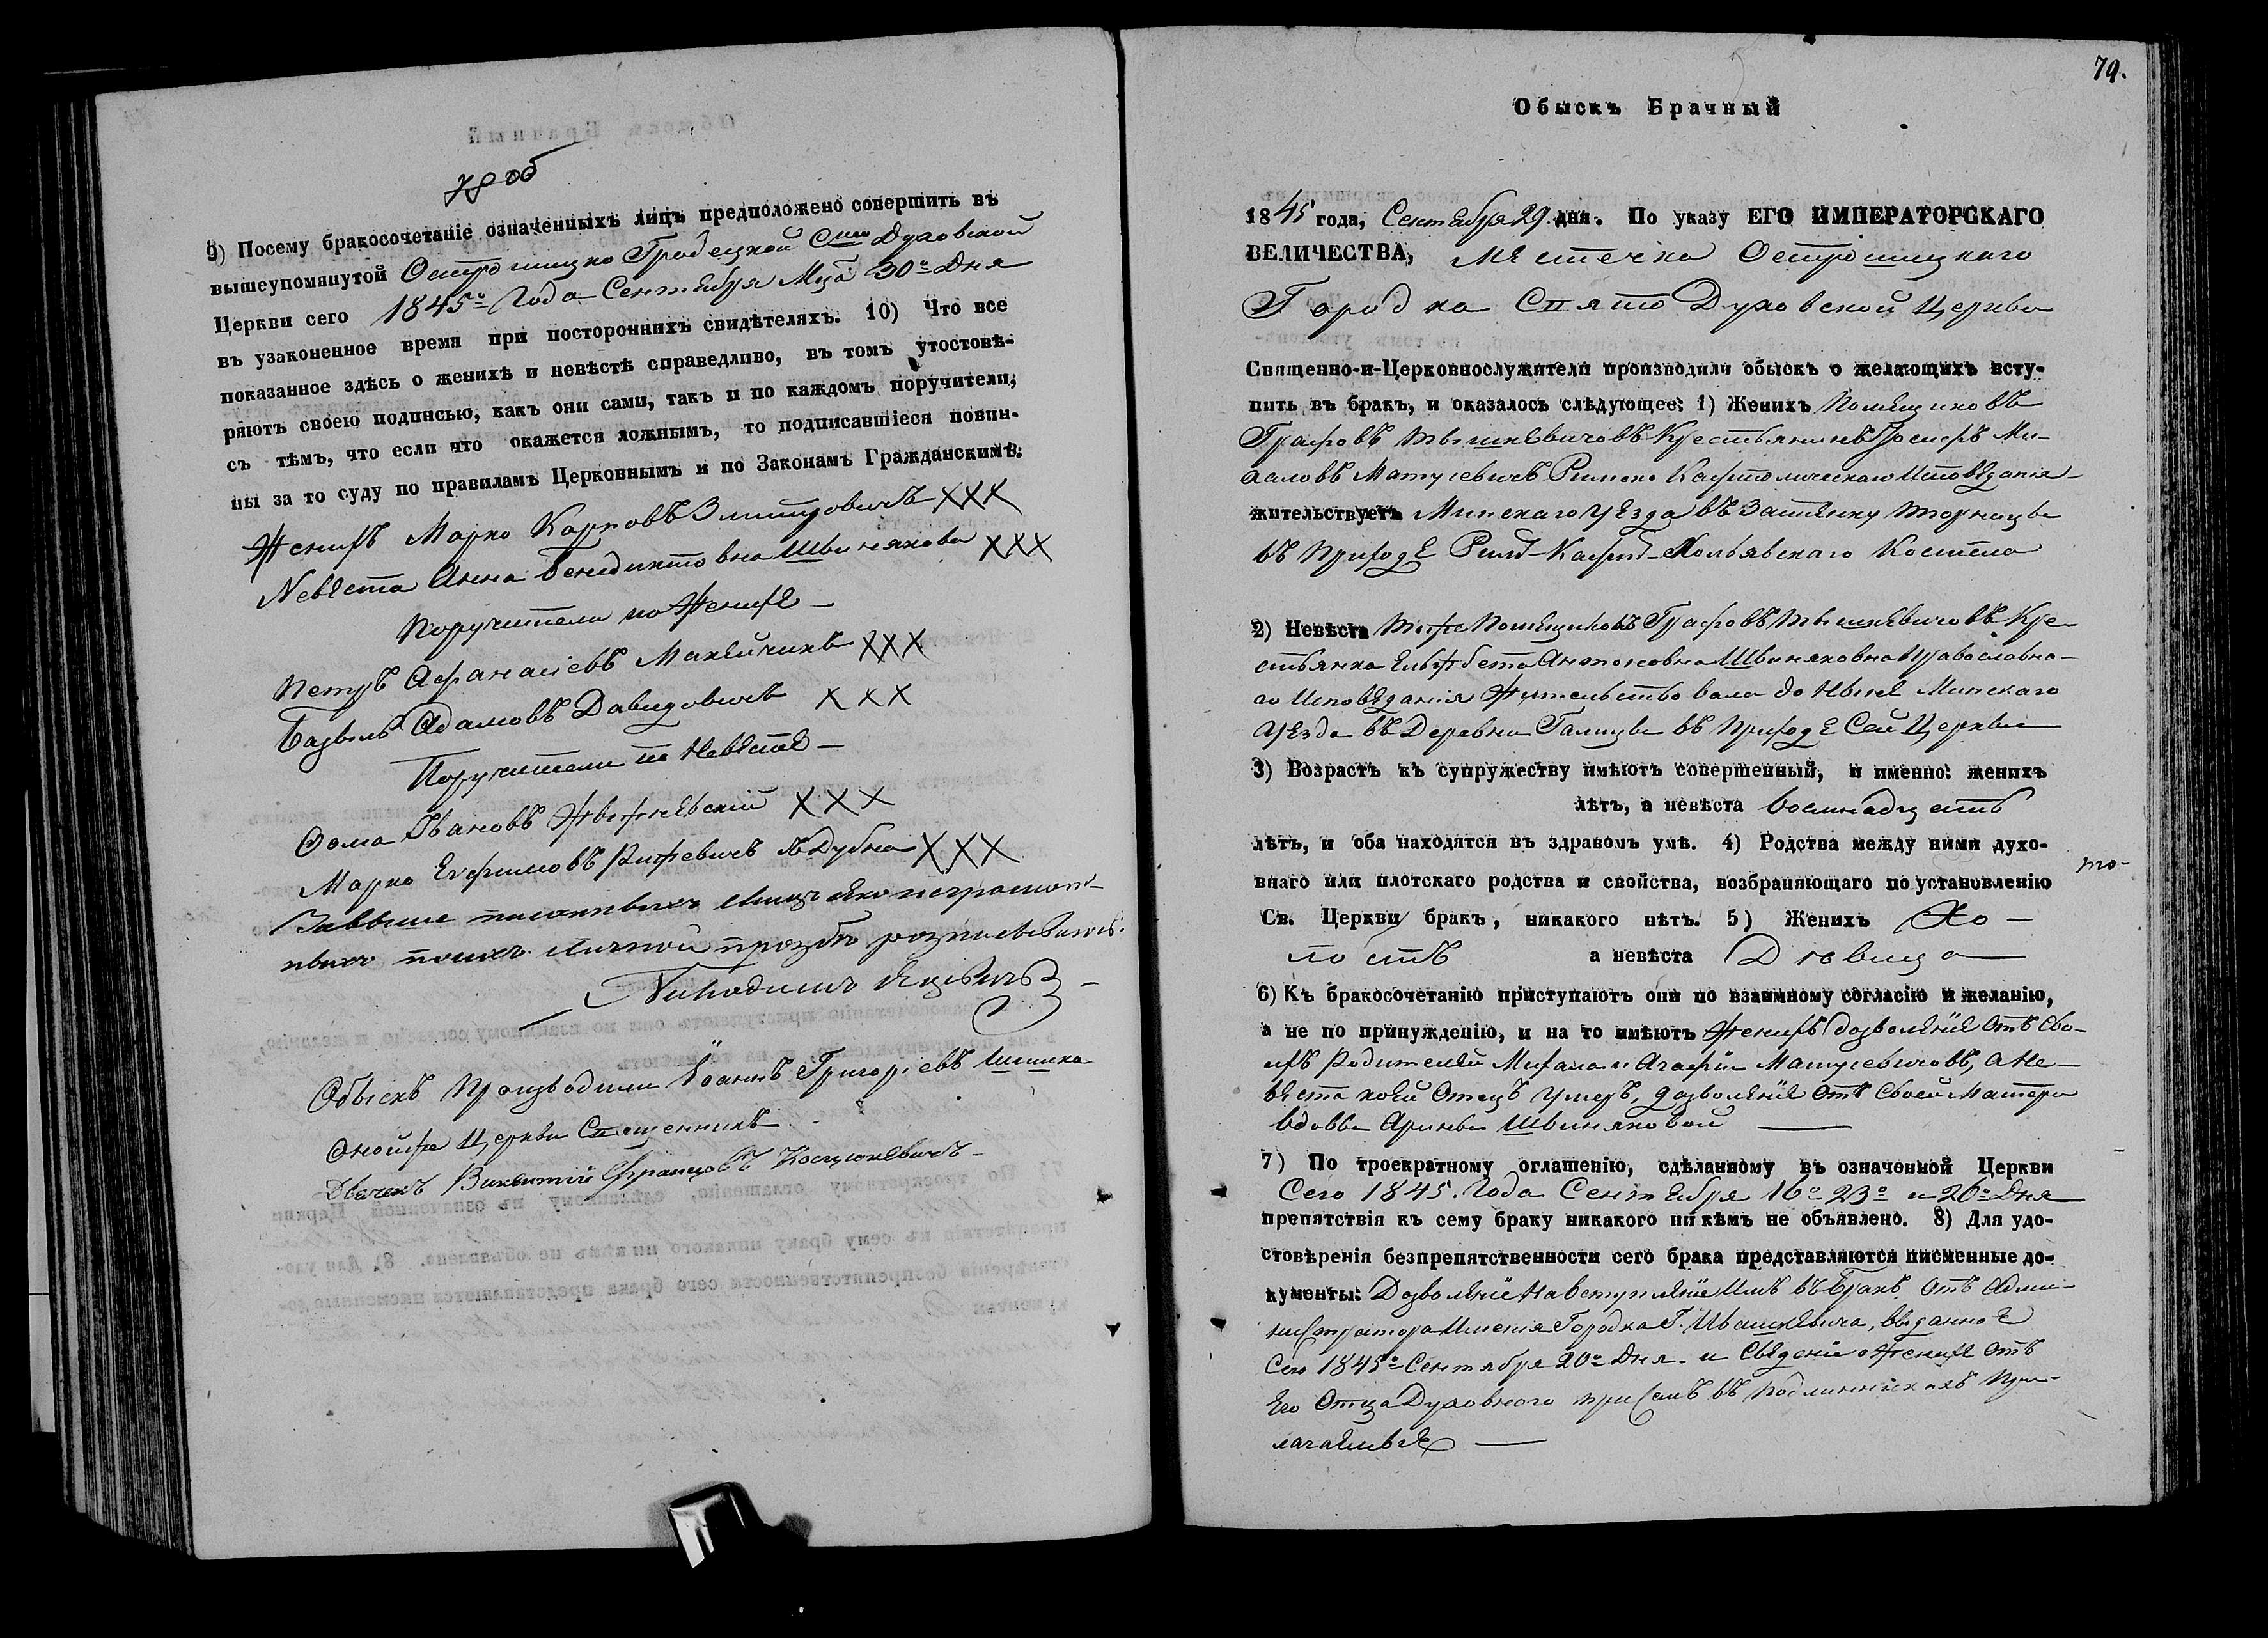 78 об
9) Посему бракосочетаніе означенныхъ лицъ предположено совершить въ
вышеупомянутой Остро шицко Городецкой Духовской
Церкви сего 1845го Года Сентября Мца 30го Дня
въ узаконенное время при постороннихъ свидѣтеляхъ. 10) Что все
показанное здѣсь о женихѣ и невѣстѣ справедливо, въ томъ утостовѣ-
ряютъ своею подписью, какъ они сами, такъ и по каждомъ поручители,
съ тѣмъ, что если что окажется ложнымъ, то подписавшіеся повин-
ны за то суду по правиламъ Церковнымъ и по Законамъ Гражданскимъ.
Женихъ Марко Карповъ Змитровичъ ХХХ
Невѣста Анна Бенедиктовна Швинякова ХХХ
Поручители по Женихѣ —
Петръ Афанасіевъ Макейчикъ ХХХ
Адамовъ Давидовичъ ХХХ
Поручители по Невѣстѣ —
Ѳома Ивановъ ХХХ
Марко Ефимовъ ХХХ
Обыскъ Производили Іоаннъ Григоріевъ Шишка
Оной же Церкви Священникъ
Дьячекъ Викентій Францовъ Костюкевичъ
79.
Обыскъ Брачный
1845 года, Сентября 29 дня. По указу ЕГО ИМПЕРАТОРСКАГО
ВЕЛИЧЕСТВА, Мѣстечка Острошицкаго
Городка Свято Духовской Церкви
Священно-и-Церковнослужители производили обыскъ о желающихъ всту-
пить въ бракъ, и оказалось слѣдующее: 1) Женихъ Помѣщиковъ
Графовъ Тышкевичовъ Крестьянинъ Іосифъ Ми-
халовъ Матусевичъ Римско Кафтолическаго Исповѣданія
жительствуетъ Минскаго Уѣзда въ Застѣнку
въ Приходѣ Рим-Каф- Хольявскаго Костела
2) Невѣста Тѣхже Помѣщиковъ Графовъ Тышкевичовъ Кре-
стьянка Антоновна Швиняковна Православна-
го Исповѣданія Жительствовала до Нынѣ Минскаго
Уѣзда въ Деревни Галицы въ Приходѣ Сей Церкви
3) Возрастъ къ супружеству имѣютъ совершенный, и именно: женихъ
лѣтъ, а невѣста восимнадцать
лѣтъ, и оба находятся въ здравомъ умѣ. 4) Родства между ними духо-
внаго или плотскаго родства и свойства, возбраняющаго по установленію
Св. Церкви бракъ, никакого нѣтъ. 5) Женихъ Хо-
лостъ а невѣста Дѣвица
6) Къ бракосочетанію приступаютъ они по взаимному согласію и желанію,
а не по принужденію, и на то имѣютъ Женихъ дозволѣніе Отъ Сво-
ихъ Родителей Михала и Агафіи Матусевичовъ, а Не-
вѣста коей Отецъ Умеръ, дозволѣніе Отъ Своей Матери
вдовы Арины Швиняковой
7) По троекратному оглашенію, сдѣланному въ означенной Церкви
Сего 1845. Года Сентября 16го 23го и 26го Дня
препятствія къ сему браку никакого ни кѣмъ не объявлено. 8) Для удо-
стовѣренія безпрепятственности сего брака представляются писменные до-
кументы: Дозволѣніе На вступлѣніе Имъ въ Бракъ Отъ Адми-
нистратора Именія Городка Г. Ивашкевича, выданное
Сего 1845го Сентября 20го Дня и Свѣденіе о Женихѣ Отъ
Его Отца Духовного при Семъ въ Подлинникахъ При-
лагаемые